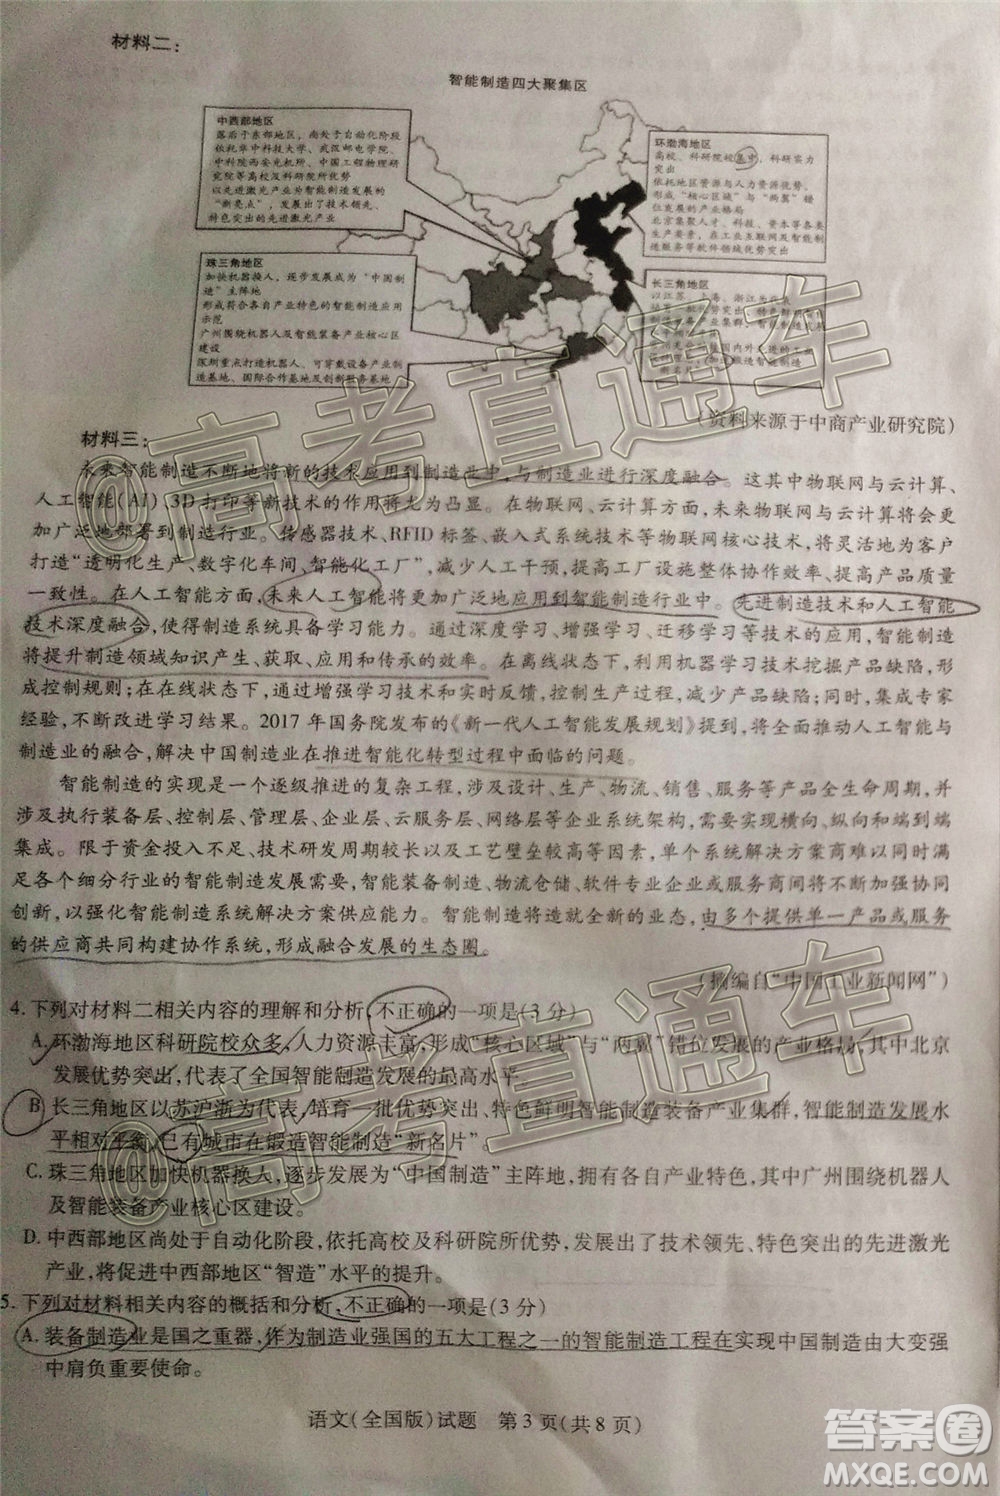 材料二：
智能制造四大聚集区
中西部地区
落后于东部地区，尚处于自动化阶段
依托华中科技大学、武汉邮电学院、
中科院西安光机所、中国工程物理研
究院等高校及科研院所优势
以先进激光产业为智能制造发展的
“新亮点”，发展出了技术领先、
特色突出的先进激光产业
环渤海地区
高校、科研院校集中，科研实力
突出
依托地区资源与人力资源优势，
形成“核心区域”与“两翼”错
位发展的产业格局
北京集聚人才、科技、资本等各类
生产要素，在工业互联网及智能制
造服务等软件领域优势突出
珠三角地区
加快机器换人，逐步发展成为“中国制
造”主阵地
形成符合各自产业特色的智能制造应用
示范
广州围绕机器人及智能装备产业核心区
建设
深圳重点打造机器人、可穿戴设备产业制
造基地、国际合作基地及创新服务基地
长三角地区
以江苏、上海、浙江为代表
（资料来源于中商产业研究院）
材料三：
未来智能制造不断地将新的技术应用到制造业中，与制造业进行深度融合。这其中物联网与云计算、
人工智能（AI）、3D打印等新技术的作用将尤为凸显。在物联网、云计算方面，未来物联网与云计算将会更
加广泛地部署到制造行业。传感器技术、RFID标签、嵌入式系统技术等物联网核心技术，将灵活地为客户
打造“透明化生产、数字化车间、智能化工厂”，减少人工干预，提高工厂设施整体协作效率、提高产品质量
一致性。在人工智能方面，未来人工智能将更加广泛地应用到智能制造行业中。先进制造技术和人工智能
技术深度融合，使得制造系统具备学习能力。通过深度学习、增强学习、迁移学习等技术的应用，智能制造
将提升制造领域知识产生、获取、应用和传承的效率。在离线状态下，利用机器学习技术挖掘产品缺陷，形
成控制规则；在在线状态下，通过增强学习技术和实时反馈，控制生产过程，减少产品缺陷；同时，集成专家
经验，不断改进学习结果。2017年国务院发布的《新一代人工智能发展规划》提到，将全面推动人工智能与
制造业的融合，解决中国制造业在推进智能化转型过程中面临的问题。
智能制造的实现是一个逐级推进的复杂工程，涉及设计、生产、物流、销售、服务等产品全生命周期，并
涉及执行装备层、控制层、管理层、企业层、云服务层、网络层等企业系统架构，需要实现横向、纵向和端到端
集成。限于资金投入不足、技术研发周期较长以及工艺壁垒较高等因素，单个系统解决方案商难以满足
足各个细分行业的智能制造发展需要，智能装备制造、物流仓储、软件专业企业或服务商间将不断加强协同
创新，以强化智能制造系统解决方案供应能力。智能制造将造就全新的业态，由多个提供单一产品或服务
的供应商共同构建协作系统，形成融合发展的生态圈。
（摘编自“中国工业新闻网”）
4.下列对材料二相关内容的理解和分析，不正确的一项是（3分）
A.环渤海地区科研院校众多，人力资源丰富，形成“核心区域”与“两翼”错位发展的产业格局，其中北京
发展优势突出，代表了全国智能制造发展的最高水平。
B.长三角地区以苏沪浙为代表，培育一批优势突出、特色鲜明智能制造装备产业集群，智能制造发展水
平相对平衡，已有城市在锻造智能制造“新名片”。
C.珠三角地区加快机器换人，逐步发展成为“中国制造”主阵地，拥有各自产业特色，其中广州围绕机器人
及智能装备产业核心区建设。
D.中西部地区尚处于自动化阶段，依托高校及科研院所优势，发展出了技术领先、特色突出的先进激光
产业，将促进中西部地区“智造”水平的提升。
5.下列对材料相关内容的概括和分析，不正确的一项是（3分）
A.装备制造业是国之重器，作为制造业强国的五大工程之一的智能制造工程在实现中国制造由大变强
中肩负重要使命。
语文（全国版）试题　第3页（共8页）
@高考直通车
@高考直通车
答案圈
MXQE.COM